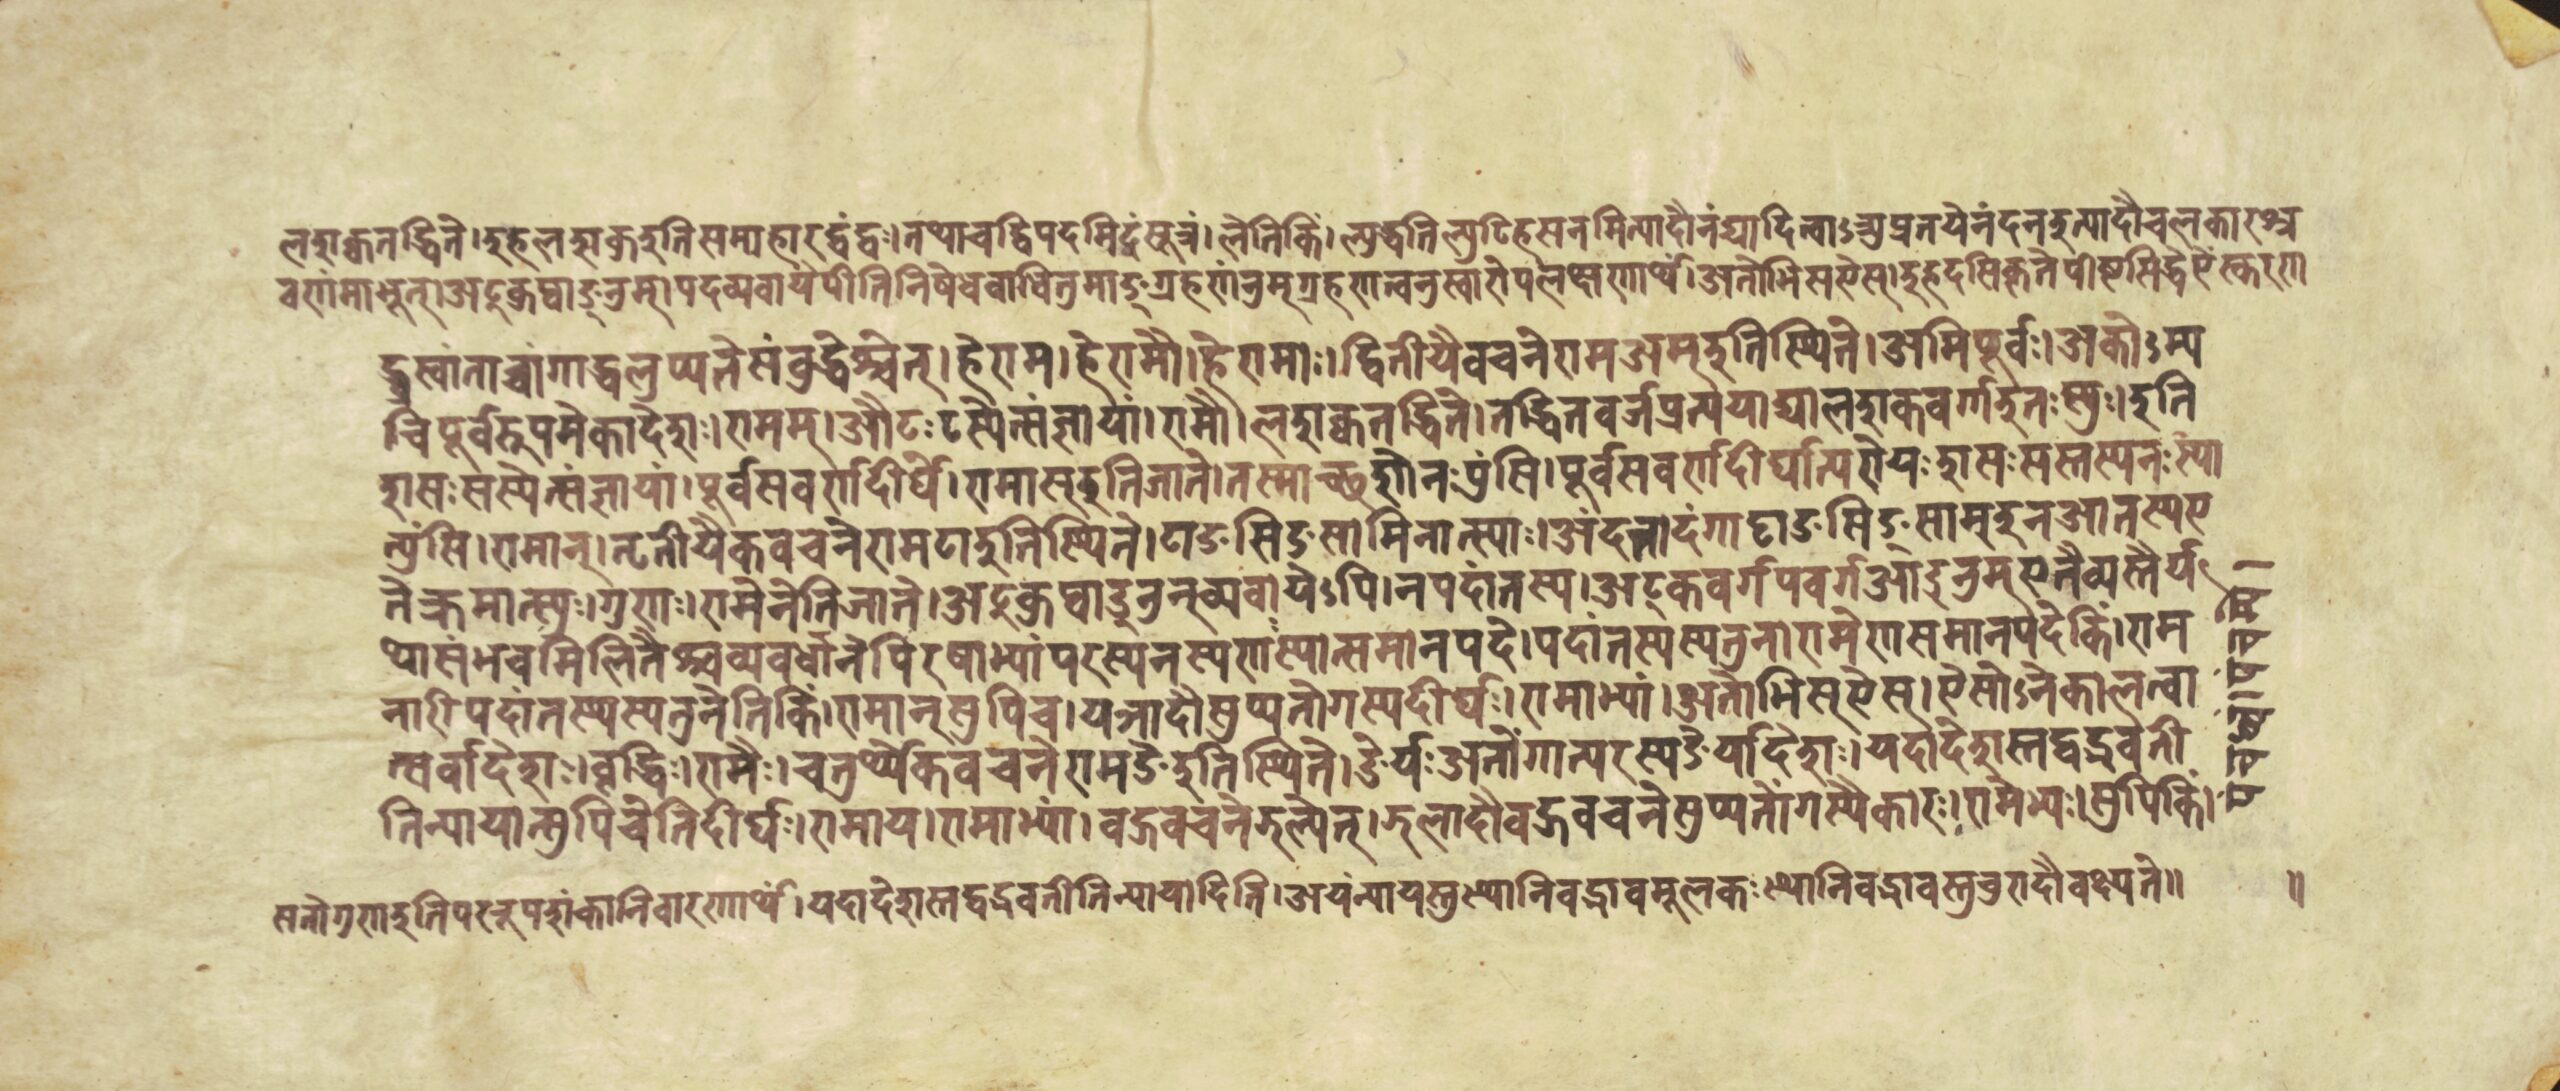 लशक्वतद्धिते।इहलशक्वइतिसमाहारद्वंद्वः।तथाचद्विपदमिदंसूत्रं।लेतिकिं।ल्युड्वेतिल्युटिहसनमित्यादौनंद्यादित्वाऽल्युप्रत्ययेनंदनइत्यादौचलकारश्रे
वणंमाभूत्।अट्कुप्वाङ्नुम्।पदव्यवायेपीतिनिषेधबाधितुमाङ्ग्रहणंनुम्ग्रहणत्वनुस्वारोपलक्षणार्थं।अतोभिसऐस्।इहएदसिकृतेपीष्टसिद्धेऐस्करण
द्ध्रस्वांताच्चांगाद्धलुप्यतेसंबुद्धेश्चेत्।हेराम।हेरामौ।हेरामाः।द्वितीयैवचनेरामअम्इतिस्थिते।अमिपूर्वः।अकोऽम्य
चिपूर्वरूपमेकादेशः।रामम्।औटःटस्येत्संज्ञायां।रामौ।लशक्वतद्धिते।तद्धितवर्जप्रत्ययाद्यालशकवर्गाइतःस्युः।इति
शसःसस्येत्संज्ञायां।पूर्वसवर्णदीर्घे।रामास्इतिजाते।तस्माच्छसोनःपुंसि।पूर्वसवर्णदीर्घात्परोयःशसःसस्तस्यनःस्या
त्पुंसि।रामान्।तृतीयैकवचनेरामटाइतिस्थिते।टाङसिङसामिनात्स्याः।अदन्तादंगाट्टाङसिङ्साम्इनआत्स्यए
तेक्रमात्स्युः।गुणः।रामेनेतिजाते।अट्कुप्वाङ्नुम्व्यवायेऽपि।नपदांतस्य।अट्कवर्गपवर्गआङ्नुम्एतैर्व्यस्तैर्य
थासंभवमिलितैश्चव्यवधानेपिरषाभ्यांपरस्यनस्यणःस्यात्समानपदे।पदांतस्यस्यतुना।रामेणसमानपदेकिं।राम
नारीपदांतस्यस्यतुनेतिकिं।रामान्सुपिच।यञादौसुप्यतोगस्यदीर्घः।रामाभ्यां।अतोभिस्ऐस्।ऐसोऽनेकाल्त्वा
त्सर्वादेशः।वृद्धिः।रामैः।चतुर्थ्येकवचनेरामङेइतिस्थिते।ङेर्यःअतोंगात्परस्यङेर्यादेशः।यदादेशस्तद्वद्भवती
तिन्यायात्सुपिचेतिदीर्घः।रामाय।रामाभ्यां।बहुवचनेझल्येत्।झलादौबहुवचनेसुप्यतोंगस्यैकारः।रामेभ्यः।सुपिकिं।
सतोगुणइतिपररूपशंकानिवारणार्थं।यदादेशस्तद्वद्भवतीतिन्यायादिति।अयंन्यायस्तुस्थानिवद्भावमूलकःस्थानिवद्भावस्तुत्रणादौवक्ष्यते॥ ॥